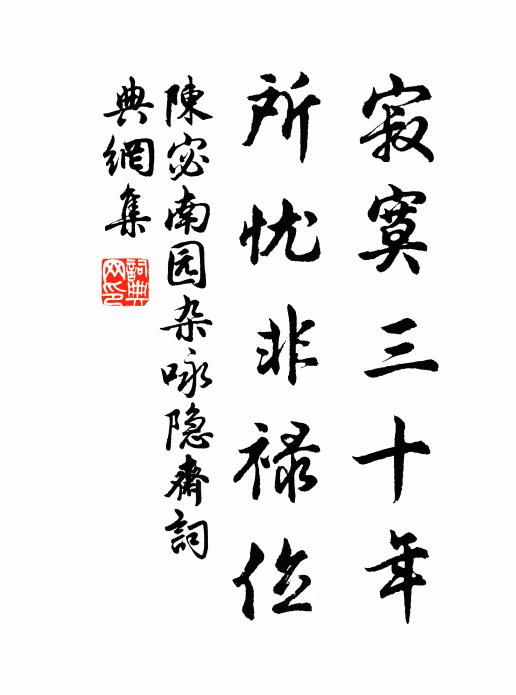 寂寞三十年
所忧非禄位
陳宓南园杂咏隐齋詞
典網集
詞典網印